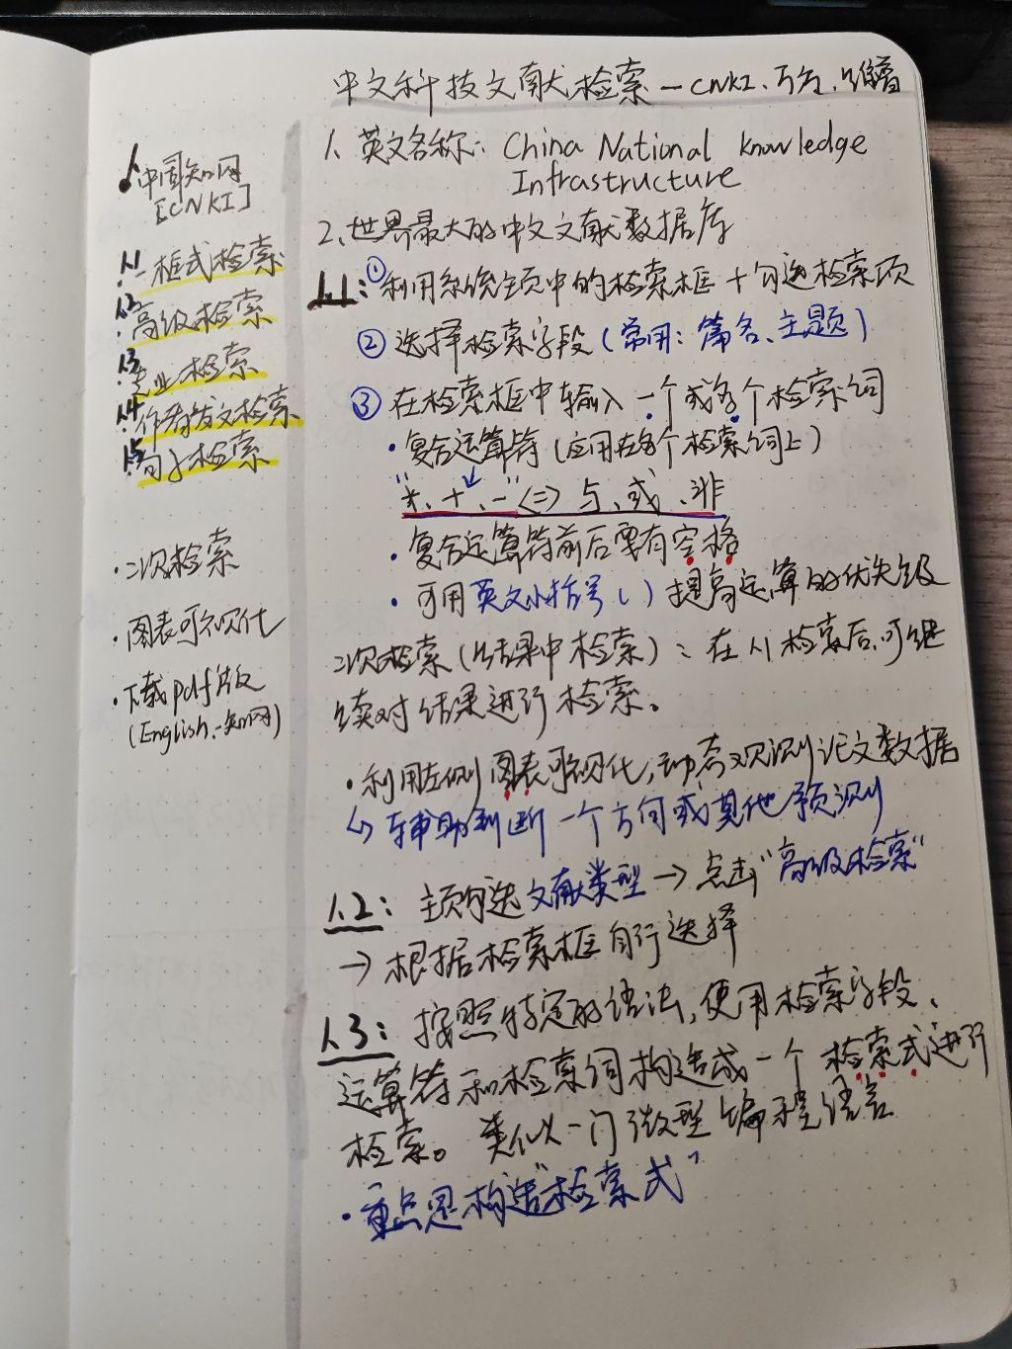 中文科技文献检索—CNKI、万方、维普
1、中国知网
[CNKI]
1.1一框式检索
1.2高级检索
1.3专业检索
1.4作者发文检索
1.5句子检索
·二次检索
·图表可视化
·下载pdf版
(English-知网)
1、英文名称: China National Knowledge
Infrastructure
2、世界最大的中文文献数据库
1.1:①利用系统主页中的检索框+勾选检索项
②选择检索字段(常用:篇名、主题)
③在检索框中输入一个或多个检索词
·复合运算符(应用在多个检索词上)
"*、+、-"<=>与、或、非
·复合运算符前后要有空格
·可用英文小括号()提高运算的优先级
二次检索(结果中检索):在1.1检索后,可继
续对结果进行检索。
·利用左侧图表可视化,动态观测论文数据
↳辅助判断一个方向或其他预测
1.2:主页勾选文献类型→点击"高级检索"
→根据检索框自行选择
1.3:按照特定的语法,使用检索字段、
运算符和检索词构造成一个检索式进行
检索。类似一门微型编程语言
·重点是构造"检索式"
3